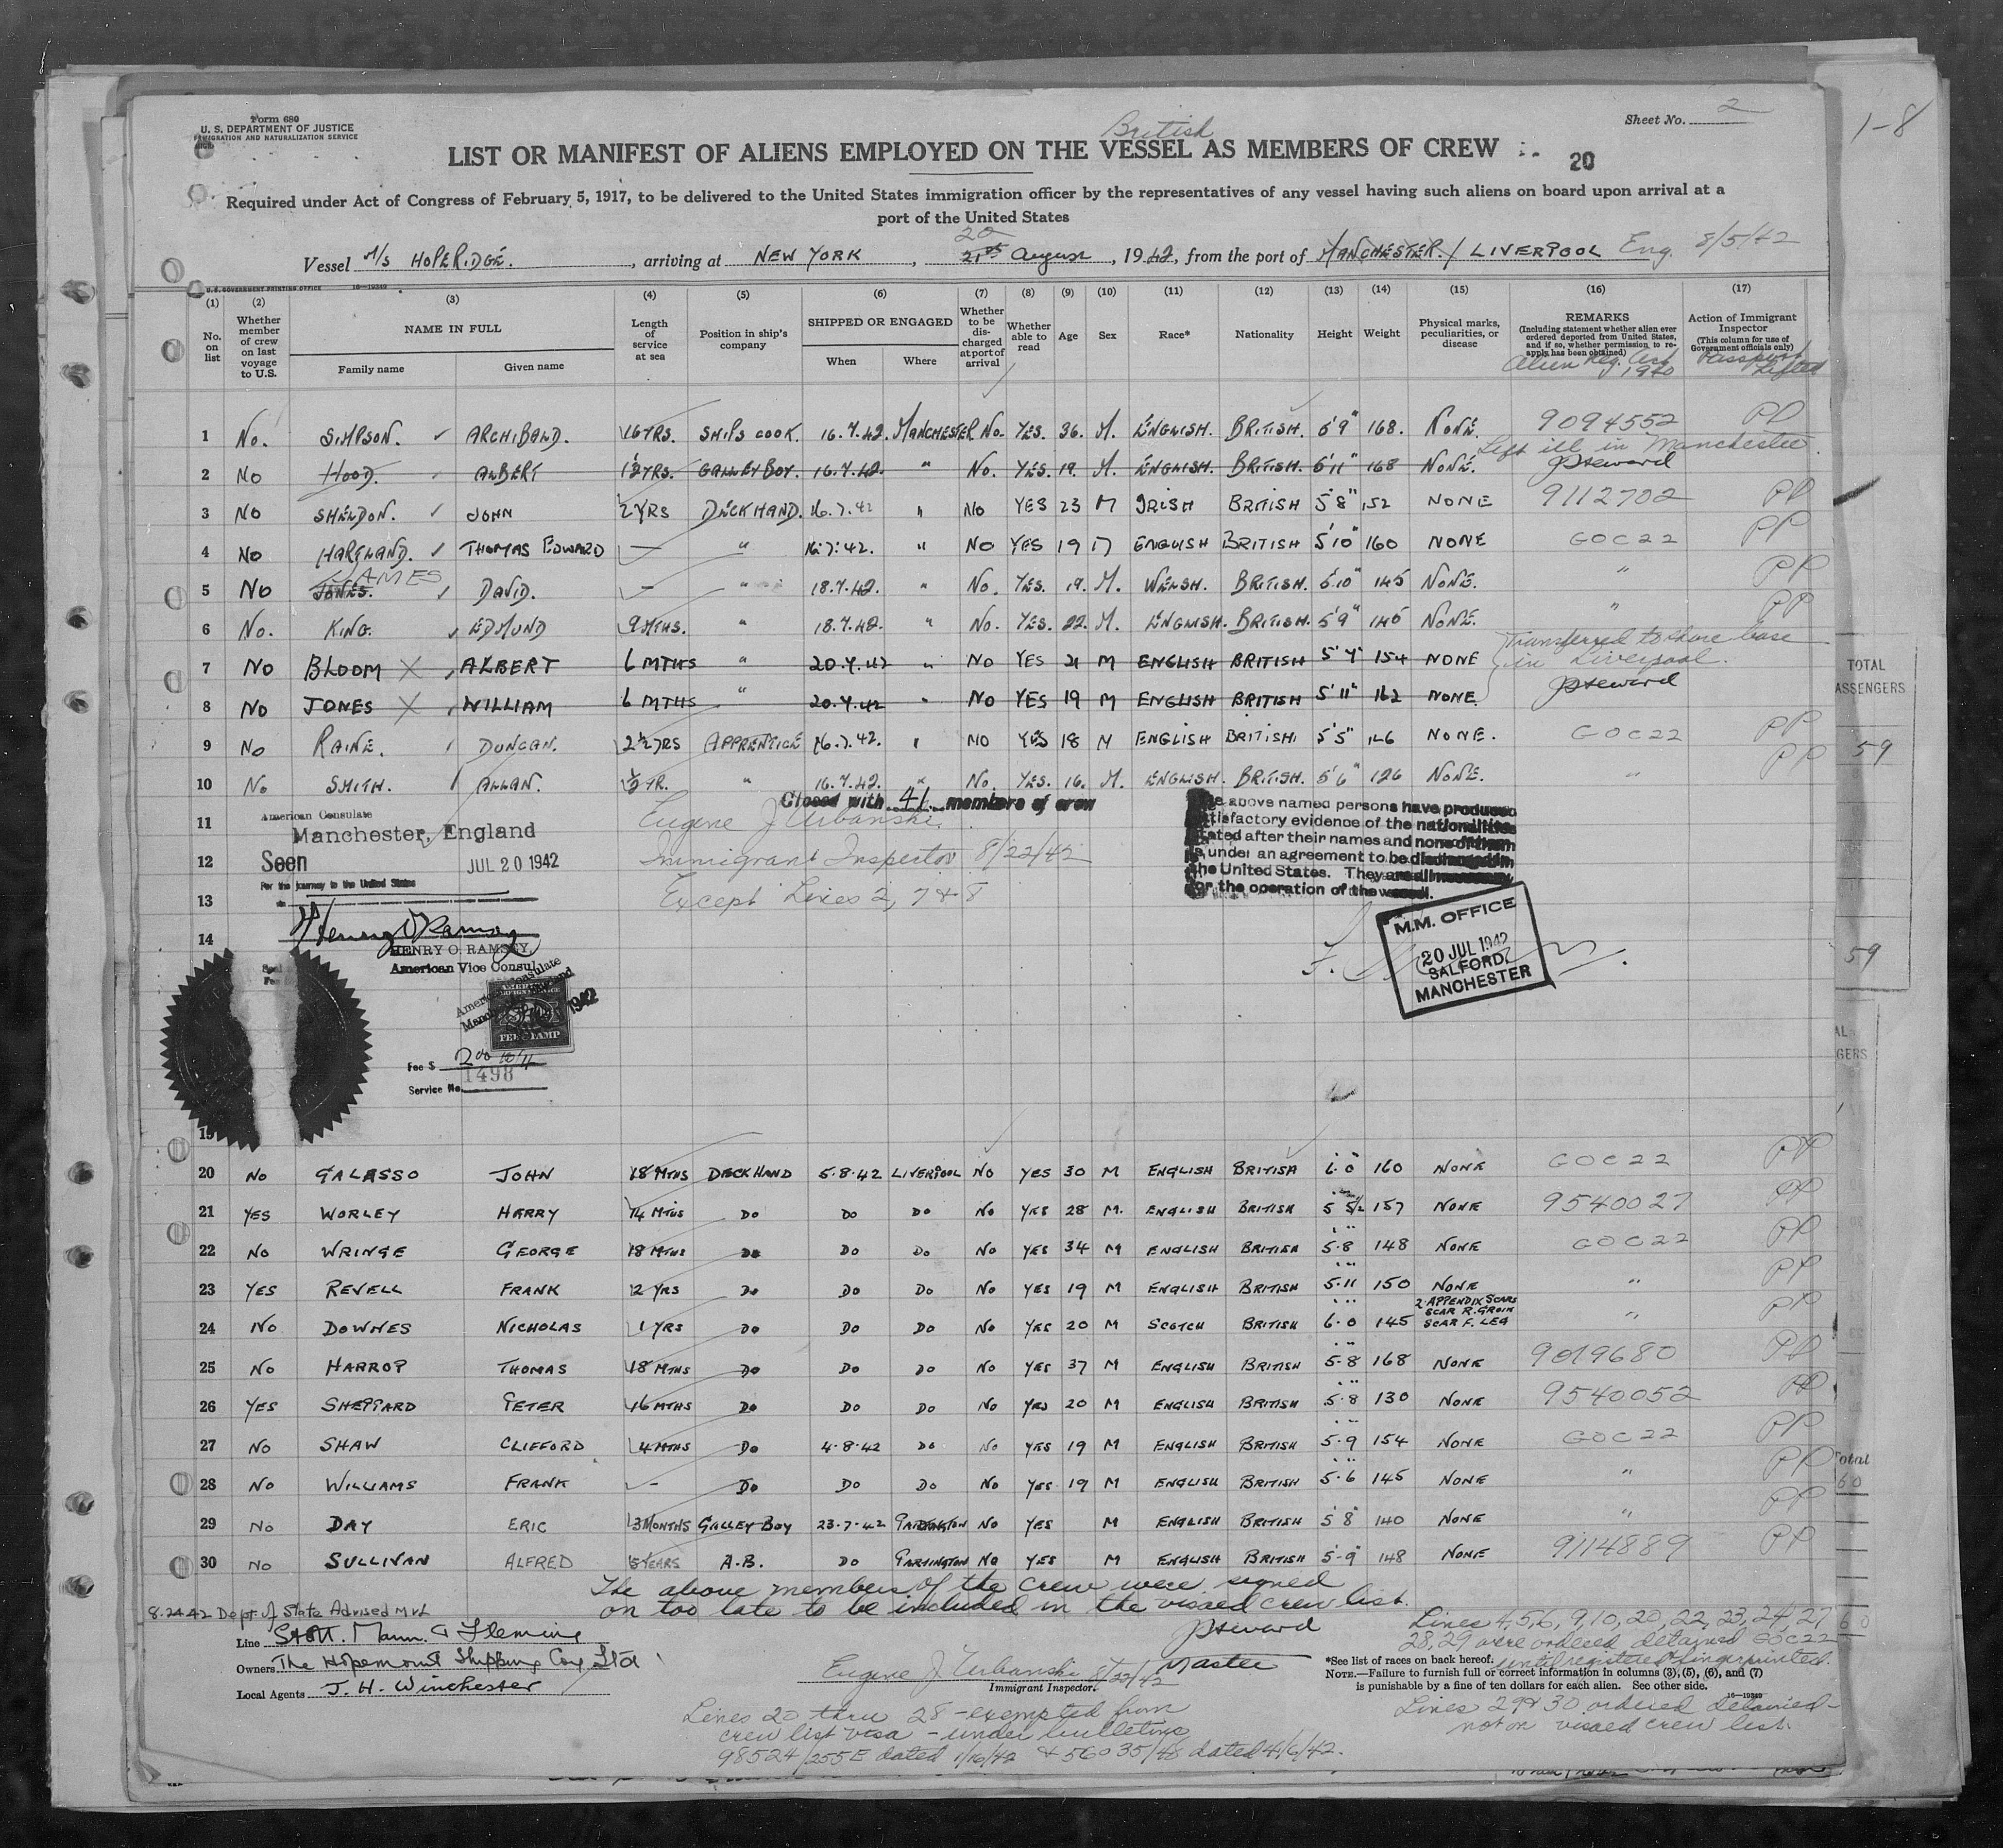 1-8
Form 680
U. S. DEPARTMENT OF JUSTICE
IMMIGRATION AND NATURALIZATION SERVICE
Sheet No. 2
British
LIST OR MANIFEST OF ALIENS EMPLOYED ON THE VESSEL AS MEMBERS OF CREW
20
Required under Act of Congress of February 5, 1917, to be delivered to the United States immigration officer by the representatives of any vessel having such aliens on board upon arrival at a
port of the United States
20
Vessel M/S HOPERIDGE. , arriving at NEW YORK , 21st August , 1942, from the port of MANCHESTER. / LIVERPOOL Eng. 8/5/42
U. S. GOVERNMENT PRINTING OFFICE 16—19349
(1) (2) (3) (4) (5) (6) (7) (8) (9) (10) (11) (12) (13) (14) (15) (16) (17)
No. on list
Whether member of crew on last voyage to U.S.
NAME IN FULL
Family name Given name
Length of service at sea
Position in ship's company
SHIPPED OR ENGAGED
When Where
Whether to be discharged at port of arrival
Whether able to read
Age
Sex
Race*
Nationality
Height
Weight
Physical marks, peculiarities, or disease
REMARKS
(Including statement whether alien ever ordered deported from United States, and if so, whether permission to reapply has been obtained)
Alien Reg. Act 1940
Action of Immigrant Inspector
(This column for use of Government officials only)
Passport Lifted
1 No. SIMPSON. ARCHIBALD. 16 YRS. SHIPS COOK. 16.7.42. MANCHESTER No. YES. 36. M. ENGLISH. BRITISH. 5'9" 168. NONE. 9094552 PP
Left ill in Manchester
2 No HOOD. ALBERT 1½YRS. GALLEY BOY. 16.7.42. " No. YES. 19. M. ENGLISH. BRITISH. 5'11" 168 NONE. JSteward
3 NO SHELDON. JOHN 2 YRS DECKHAND. 16.7.42 " NO YES 23 M IRISH BRITISH 5'8" 152 NONE 9112702 PP
4 NO HARTLAND. THOMAS EDWARD — " 16.7.42. " NO YES 19 M ENGLISH BRITISH 5'10" 160 NONE GOC22 PP
JAMES
5 NO JONES. DAVID. — " 18.7.42. " No. YES. 19. M. WELSH. BRITISH. 5'10" 145 NONE. " PP
6 No. KING. EDMUND 9 MTHS. " 18.7.42. " No. YES. 22. M. ENGLISH. BRITISH. 5'9" 140 NONE. " PP
Transferred to shore base
7 NO BLOOM X ALBERT 6 MTHS " 20.7.42 " NO YES 21 M ENGLISH BRITISH 5'7" 154 NONE in Liverpool.
8 NO JONES X WILLIAM 6 MTHS " 20.7.42 " NO YES 19 M ENGLISH BRITISH 5'11" 162 NONE JSteward
9 No RAINE. DUNCAN. 2½YRS APPRENTICE 16.7.42. " NO YES 18 M ENGLISH BRITISH 5'5" 146 NONE. GOC22 PP
10 No SMITH. ALLAN. ½ YR. " 16.7.42. " No. YES. 16. M. ENGLISH. BRITISH. 5'6" 126 NONE. " PP
11
12
13
14
Closed with 41 members of crew
Eugene J Urbanski
Immigrant Inspector 8/22/42
Except Lines 2, 7 & 8
American Consulate
Manchester, England
Seen JUL 20 1942
For the journey to the United States
Henry O Ramsey
HENRY O. RAMSEY,
American Vice Consul
1942
FEE STAMP
Fee $ 2.00
Service No. 1498
The above named persons have produced
satisfactory evidence of the nationalities
stated after their names and none of them
is under an agreement to be discharged in
the United States. They are all necessary
for the operation of the vessel.
M.M. OFFICE
20 JUL 1942
SALFORD
MANCHESTER
19
20 No GALASSO JOHN 18 MTHS DECK HAND 5.8.42 LIVERPOOL NO YES 30 M ENGLISH BRITISH 6.0 160 NONE GOC22 PP
21 YES WORLEY HARRY 14 MTHS DO DO DO NO YES 28 M. ENGLISH BRITISH 5 8½ 157 NONE 9540027 PP
22 NO WRINGE GEORGE 18 MTHS DO DO DO NO YES 34 M ENGLISH BRITISH 5.8 148 NONE GOC22 PP
23 YES REVELL FRANK 2 YRS DO DO DO NO YES 19 M ENGLISH BRITISH 5.11 150 NONE " PP
24 NO DOWNES NICHOLAS 1 YRS DO DO DO NO YES 20 M SCOTCH BRITISH 6.0 145 2 APPENDIX SCARS SCAR R. GROIN SCAR F. LEG " PP
25 NO HARROP THOMAS 18 MTHS DO DO DO NO YES 37 M ENGLISH BRITISH 5.8 168 NONE 9019680 PP
26 YES SHEPPARD PETER 16 MTHS DO DO DO NO YES 20 M ENGLISH BRITISH 5.8 130 NONE 9540052 PP
27 NO SHAW CLIFFORD 4 MTHS DO 4.8.42 DO NO YES 19 M ENGLISH BRITISH 5.9 154 NONE GOC22 PP
28 NO WILLIAMS FRANK — DO DO DO NO YES 19 M ENGLISH BRITISH 5.6 145 NONE " PP
29 NO DAY ERIC 3 MONTHS GALLEY BOY 23.7.42 PARTINGTON NO YES M ENGLISH BRITISH 5 8 140 NONE " PP
30 NO SULLIVAN ALFRED 5 YEARS A.B. DO PARTINGTON NO YES M ENGLISH BRITISH 5.9 148 NONE 9114889 PP
The above members of the crew were signed
on too late to be included in the visaed crew list.
JSteward
Master
8.24.42 Dept of State Advised MVL
Line Stott. Mann. & Fleming
Owners The Hopemount Shipping Coy Ltd
Local Agents J. H. Winchester
Eugene J. Urbanski 8/22/42
Immigrant Inspector.
Lines 4, 5, 6, 9, 10, 20, 22, 23, 24, 27
28, 29 were ordered detained GOC22
until registered & fingerprinted.
*See list of races on back hereof.
NOTE.—Failure to furnish full or correct information in columns (3), (5), (6), and (7)
is punishable by a fine of ten dollars for each alien. See other side.
16—19349
Lines 20 thru 28 - exempted from
crew list visa - under bulletins
98524/255E dated 1/16/42 & 56035/48 dated 4/6/42.
Lines 29 & 30 ordered detained -
not on visaed crew list.
TOTAL
PASSENGERS
59
59
Total
60
60